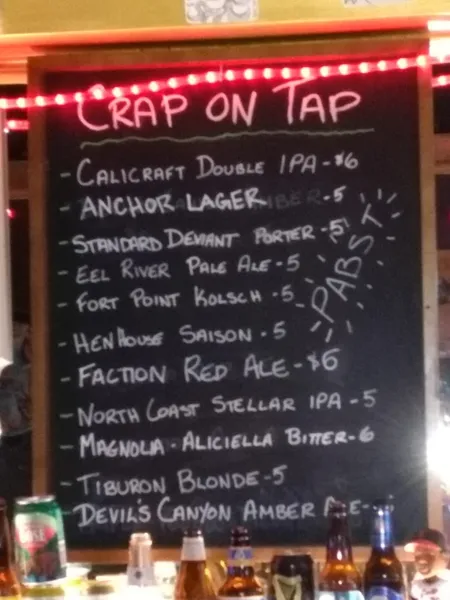 CRAP ON TAP
- CALICRAFT DOUBLE IPA - $6
- ANCHOR LAGER - 5
- STANDARD DEVIANT PORTER - 5
- EEL RIVER PALE ALE - 5
- FORT POINT KOLSCH - 5
- HENHOUSE SAISON - 5
- FACTION RED ALE - $6
- NORTH COAST STELLAR IPA - 5
- MAGNOLIA - ALICIELLA BITTER - 6
- TIBURON BLONDE - 5
- DEVILS CANYON AMBER ALE -
PABST